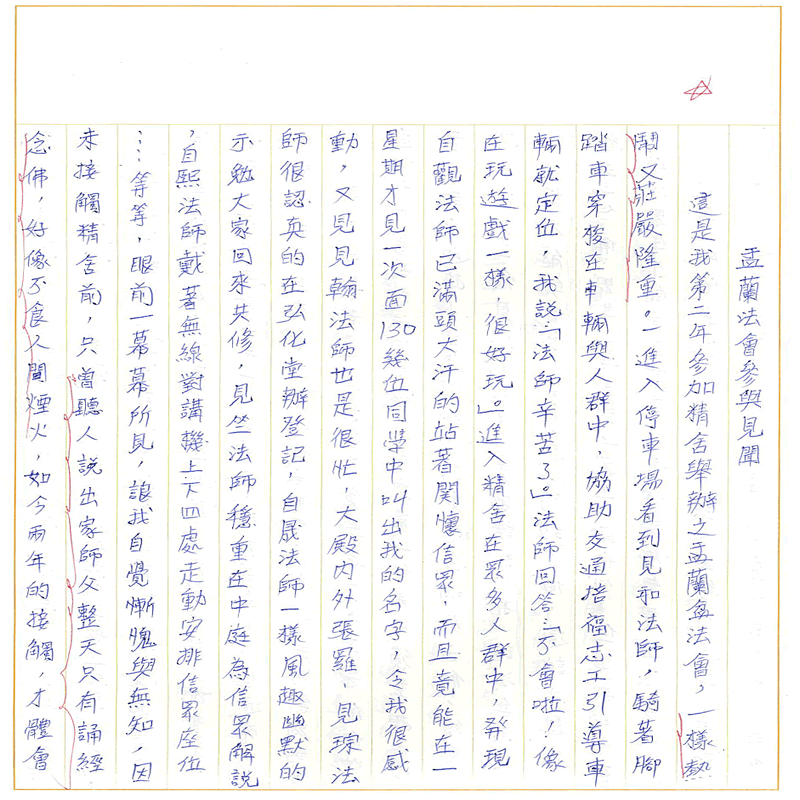 盂蘭法會參與見聞
這是我第二年參加精舍舉辦之盂蘭盆法會，一樣熱
鬧又莊嚴隆重。一進入停車場看到見和法師，騎著腳
踏車穿梭在車輛與人群中，協助交通培福志工引導車
輛就定位，我說：「法師辛苦了。」法師回答：「不會啦！像
在玩遊戲一樣，很好玩。」進入精舍在眾多人群中，發現
自觀法師已滿頭大汗的站著関懷信眾，而且竟能在一
星期才見一次面130幾位同學中叫出我的名字，令我很感
動，又見見翰法師也是很忙，大殿內外張羅、見琮法
師很認真的在弘化堂辦登記，自晟法師一樣風趣幽默的
示勉大家回來共修，見竺法師穩重在中庭為信眾解說
，自熙法師戴著無線對講機上下四處走動安排信眾座位
…等等，眼前一幕幕所見，讓我自覺慚愧與無知，因
未接觸精舍前，只曾聽人說出家師父整天只有誦經
念佛，好像不食人間煙火，如今兩年的接觸，才體會